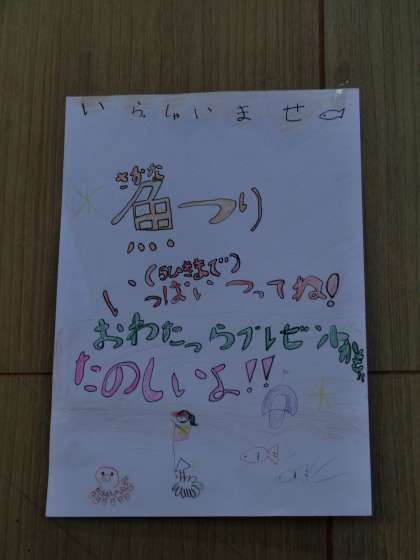 いらしゃいませ
さかな
魚つり
(5ひきまで)
いっぱいつってね!
おわたっらプレゼントが
たのしいよ!!